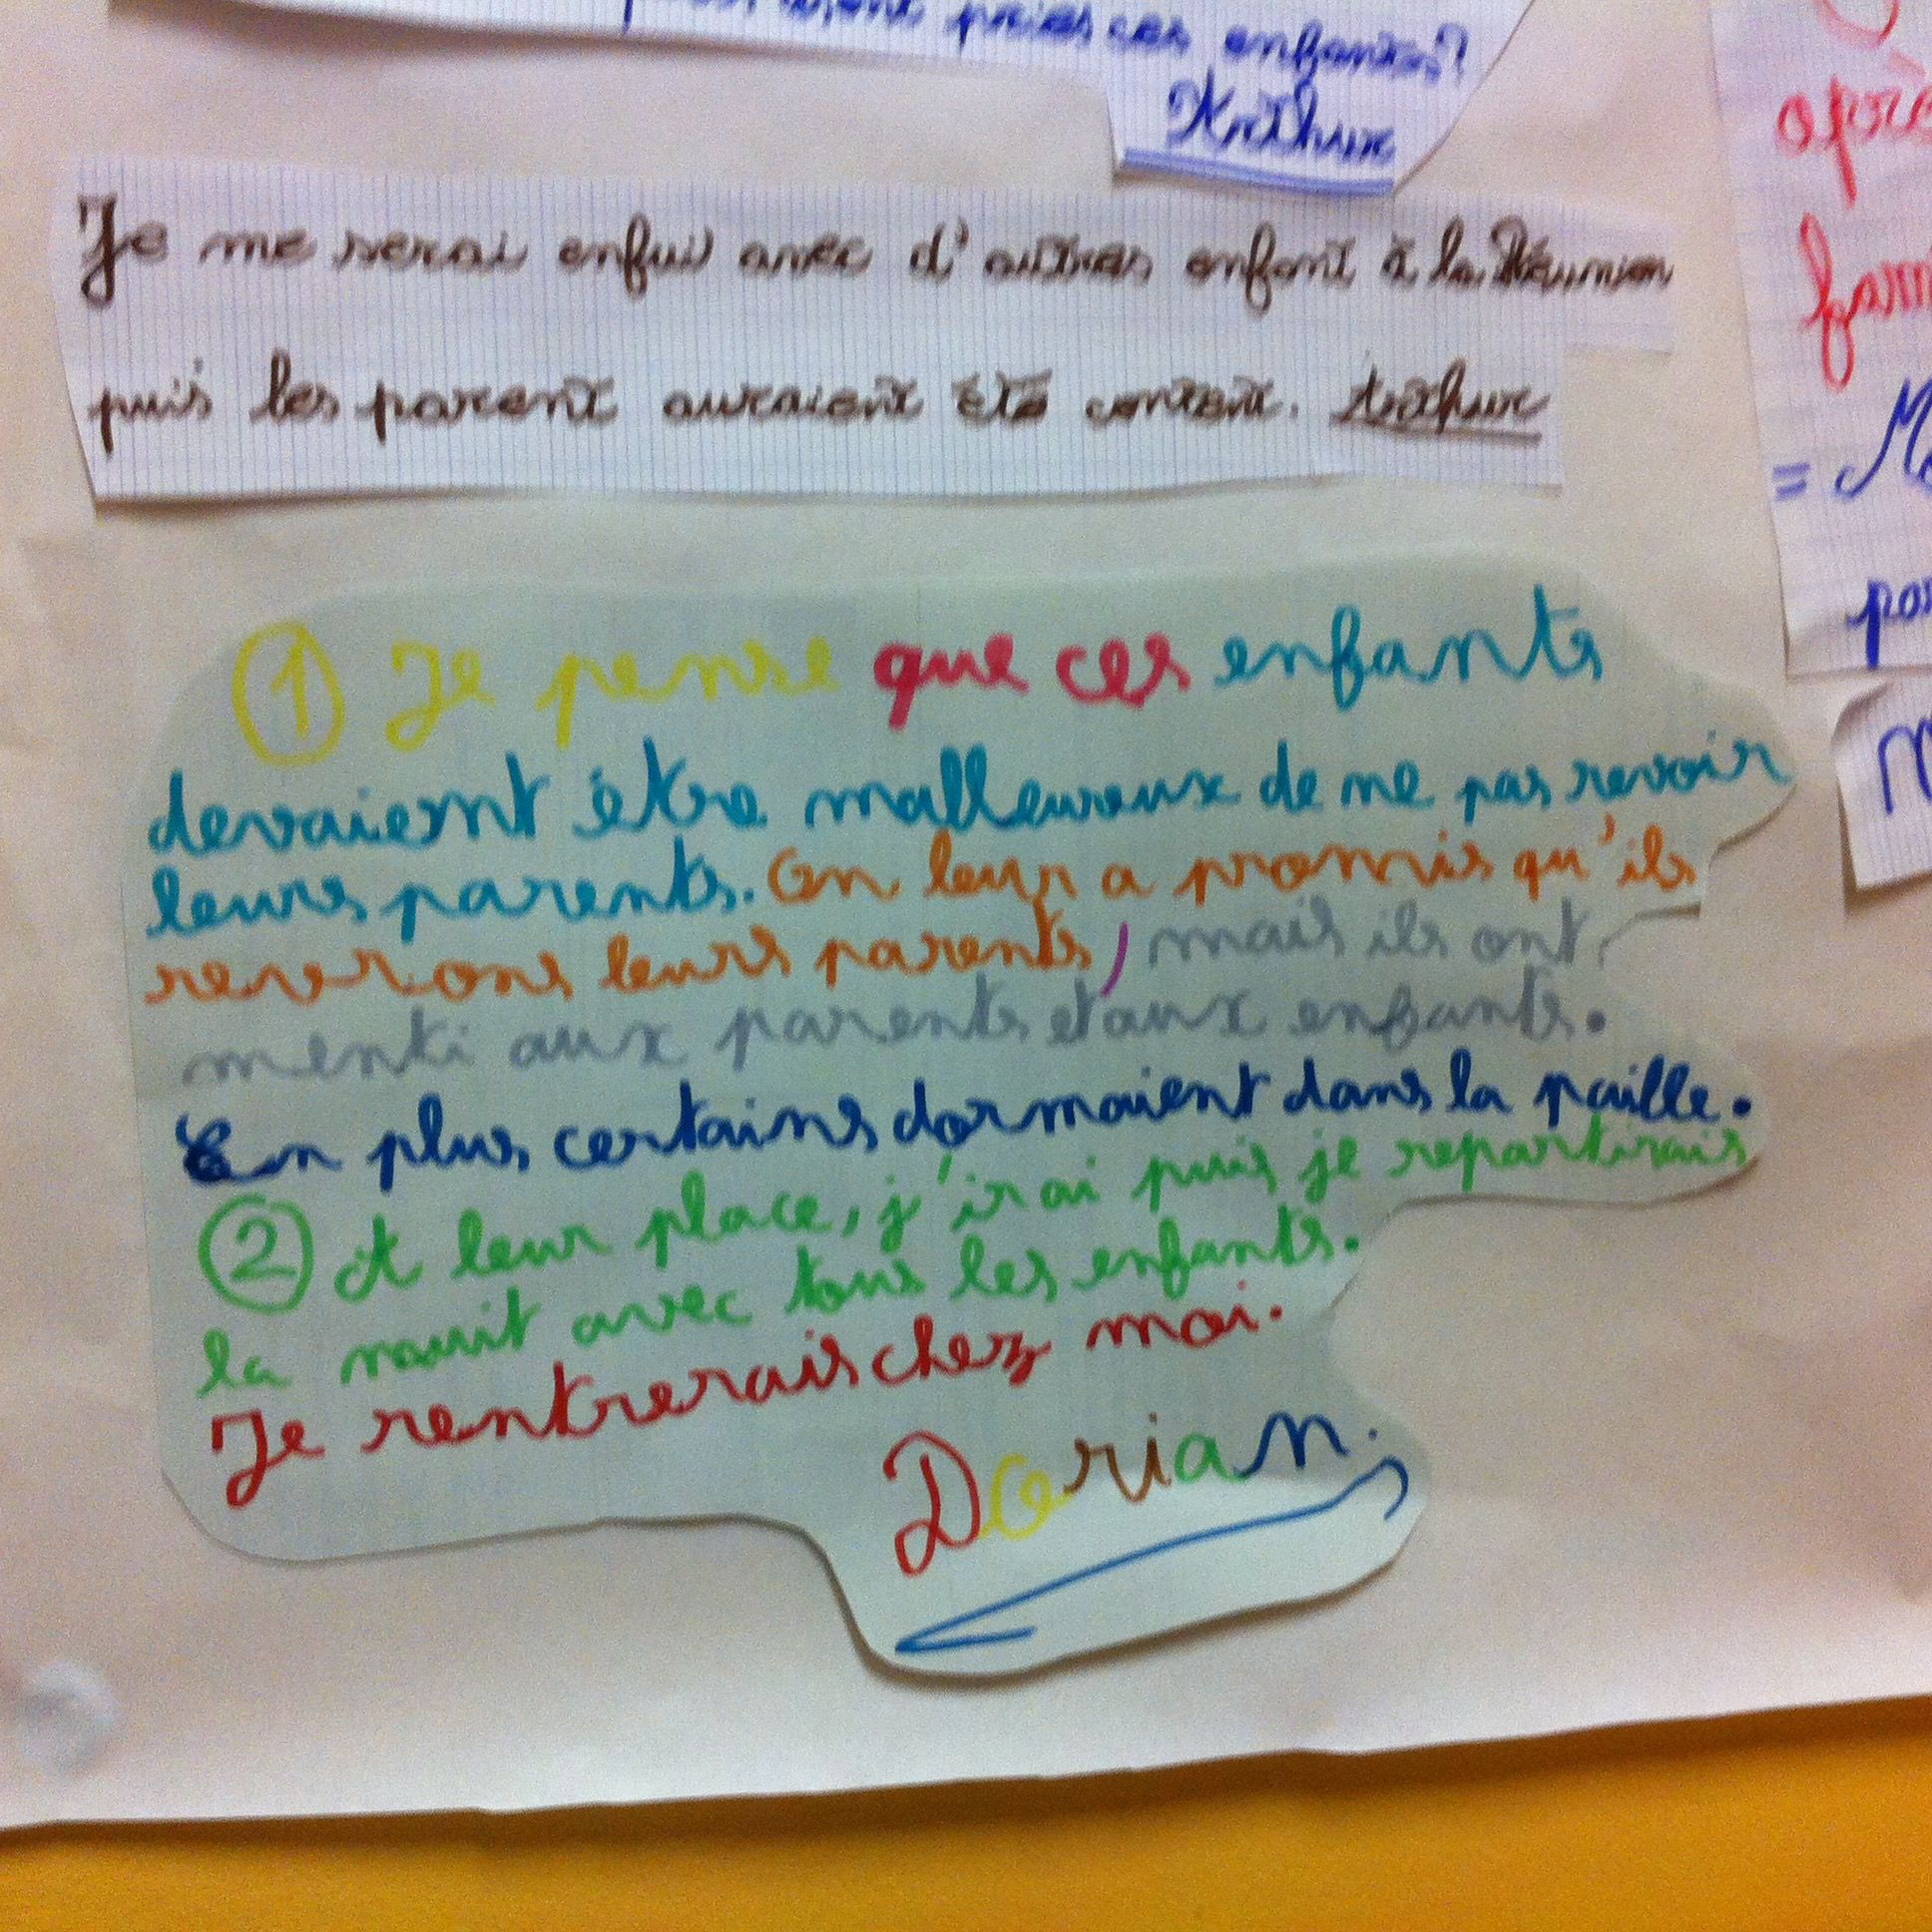 ces enfants?
Arthur
Je me serai enfui avec d'autres enfant à la Réunion
puis les parent auraient été content. Arthur
① Je pense que ces enfants
devaient être malleureux de ne pas revoir
leurs parents. On leur a promis qu'ils
reverrons leurs parents, mais ils ont
menti aux parents et aux enfants.
En plus certains dormaient dans la paille.
② A leur place, j'irai puis je repartirais
la nuit avec tous les enfants.
Je rentrerais chez moi.
Dorian.